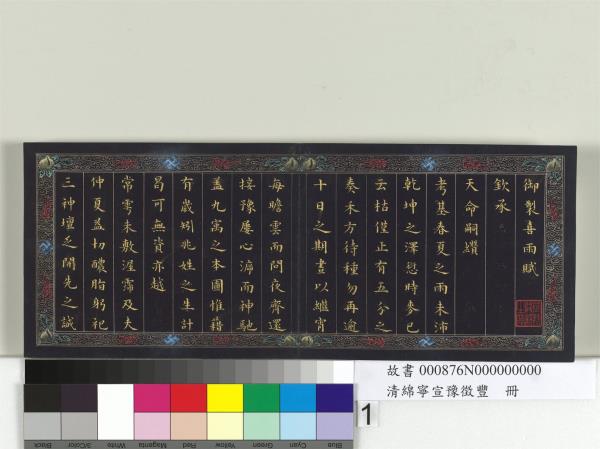 御製喜雨賦
欽承
天命嗣纘
考基春夏之雨未沛
乾坤之澤愆時麥已
云枯僅止有五分之
奏禾方待種勿再逾
十日之期晝以繼宵
每瞻雲而問夜齊還
按豫廑心漭而神馳
蓋九寓之本圖惟藉
有歲矧兆姓之生計
曷可無資亦越
常雩未敷渥霈及夫
仲夏益切醲脂躬祀
三神壇乏開先之誠
故書 000876N000000000
清綿寧宣豫徵豐 冊
1
Black
3/Color
White
Magenta
Red
Yellow
Green
Cyan
Blue